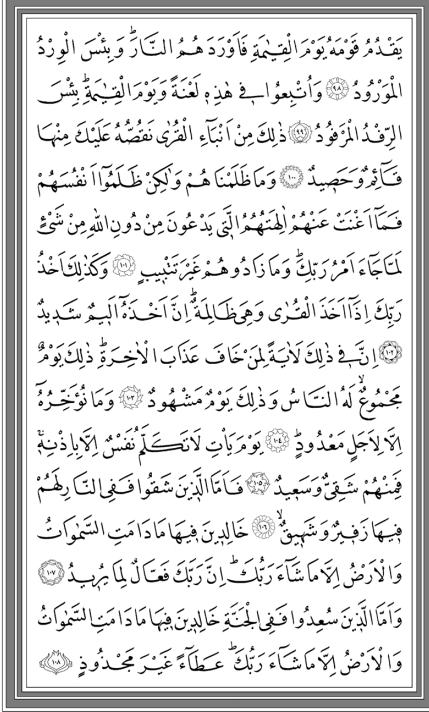 يَقْدُمُ قَوْمَهُ يَوْمَ الْقِيٰمَةِ فَاَوْرَدَهُمُ النَّارَۜ وَبِئْسَ الْوِرْدُ
الْمَوْرُودُ ﴿٩٨﴾ وَاُتْبِعُوا فٖي هٰذِهٖ لَعْنَةً وَيَوْمَ الْقِيٰمَةِۜ بِئْسَ
الرِّفْدُ الْمَرْفُودُ ﴿٩٩﴾ ذٰلِكَ مِنْ اَنْبَٓاءِ الْقُرٰى نَقُصُّهُ عَلَيْكَ مِنْهَا
قَٓائِمٌ وَحَصٖيدٌ ﴿١٠٠﴾ وَمَا ظَلَمْنَاهُمْ وَلٰكِنْ ظَلَمُٓوا اَنْفُسَهُمْ
فَمَٓا اَغْنَتْ عَنْهُمْ اٰلِهَتُهُمُ الَّتٖي يَدْعُونَ مِنْ دُونِ اللّٰهِ مِنْ شَيْءٍ
لَمَّا جَٓاءَ اَمْرُ رَبِّكَۜ وَمَا زَادُوهُمْ غَيْرَ تَتْبٖيبٍ ﴿١٠١﴾ وَكَذٰلِكَ اَخْذُ
رَبِّكَ اِذَٓا اَخَذَ الْقُرٰى وَهِيَ ظَالِمَةٌۜ اِنَّ اَخْذَهُٓ اَلٖيمٌ شَدٖيدٌ
﴿١٠٢﴾ اِنَّ فٖي ذٰلِكَ لَاٰيَةً لِمَنْ خَافَ عَذَابَ الْاٰخِرَةِۜ ذٰلِكَ يَوْمٌ
مَجْمُوعٌۙ لَهُ النَّاسُ وَذٰلِكَ يَوْمٌ مَشْهُودٌ ﴿١٠٣﴾ وَمَا نُؤَخِّرُهُٓ
اِلَّا لِاَجَلٍ مَعْدُودٍۜ ﴿١٠٤﴾ يَوْمَ يَاْتِ لَا تَكَلَّمُ نَفْسٌ اِلَّا بِاِذْنِهٖۚ
فَمِنْهُمْ شَقِيٌّ وَسَعٖيدٌ ﴿١٠٥﴾ فَاَمَّا الَّذٖينَ شَقُوا فَفِي النَّارِ لَهُمْ
فٖيهَا زَفٖيرٌ وَشَهٖيقٌۙ ﴿١٠٦﴾ خَالِدٖينَ فٖيهَا مَا دَامَتِ السَّمٰوَاتُ
وَالْاَرْضُ اِلَّا مَا شَٓاءَ رَبُّكَۜ اِنَّ رَبَّكَ فَعَّالٌ لِمَا يُرٖيدُ ﴿١٠٧﴾
وَاَمَّا الَّذٖينَ سُعِدُوا فَفِي الْجَنَّةِ خَالِدٖينَ فٖيهَا مَا دَامَتِ السَّمٰوَاتُ
وَالْاَرْضُ اِلَّا مَا شَٓاءَ رَبُّكَۜ عَطَٓاءً غَيْرَ مَجْذُوذٍ ﴿١٠٨﴾